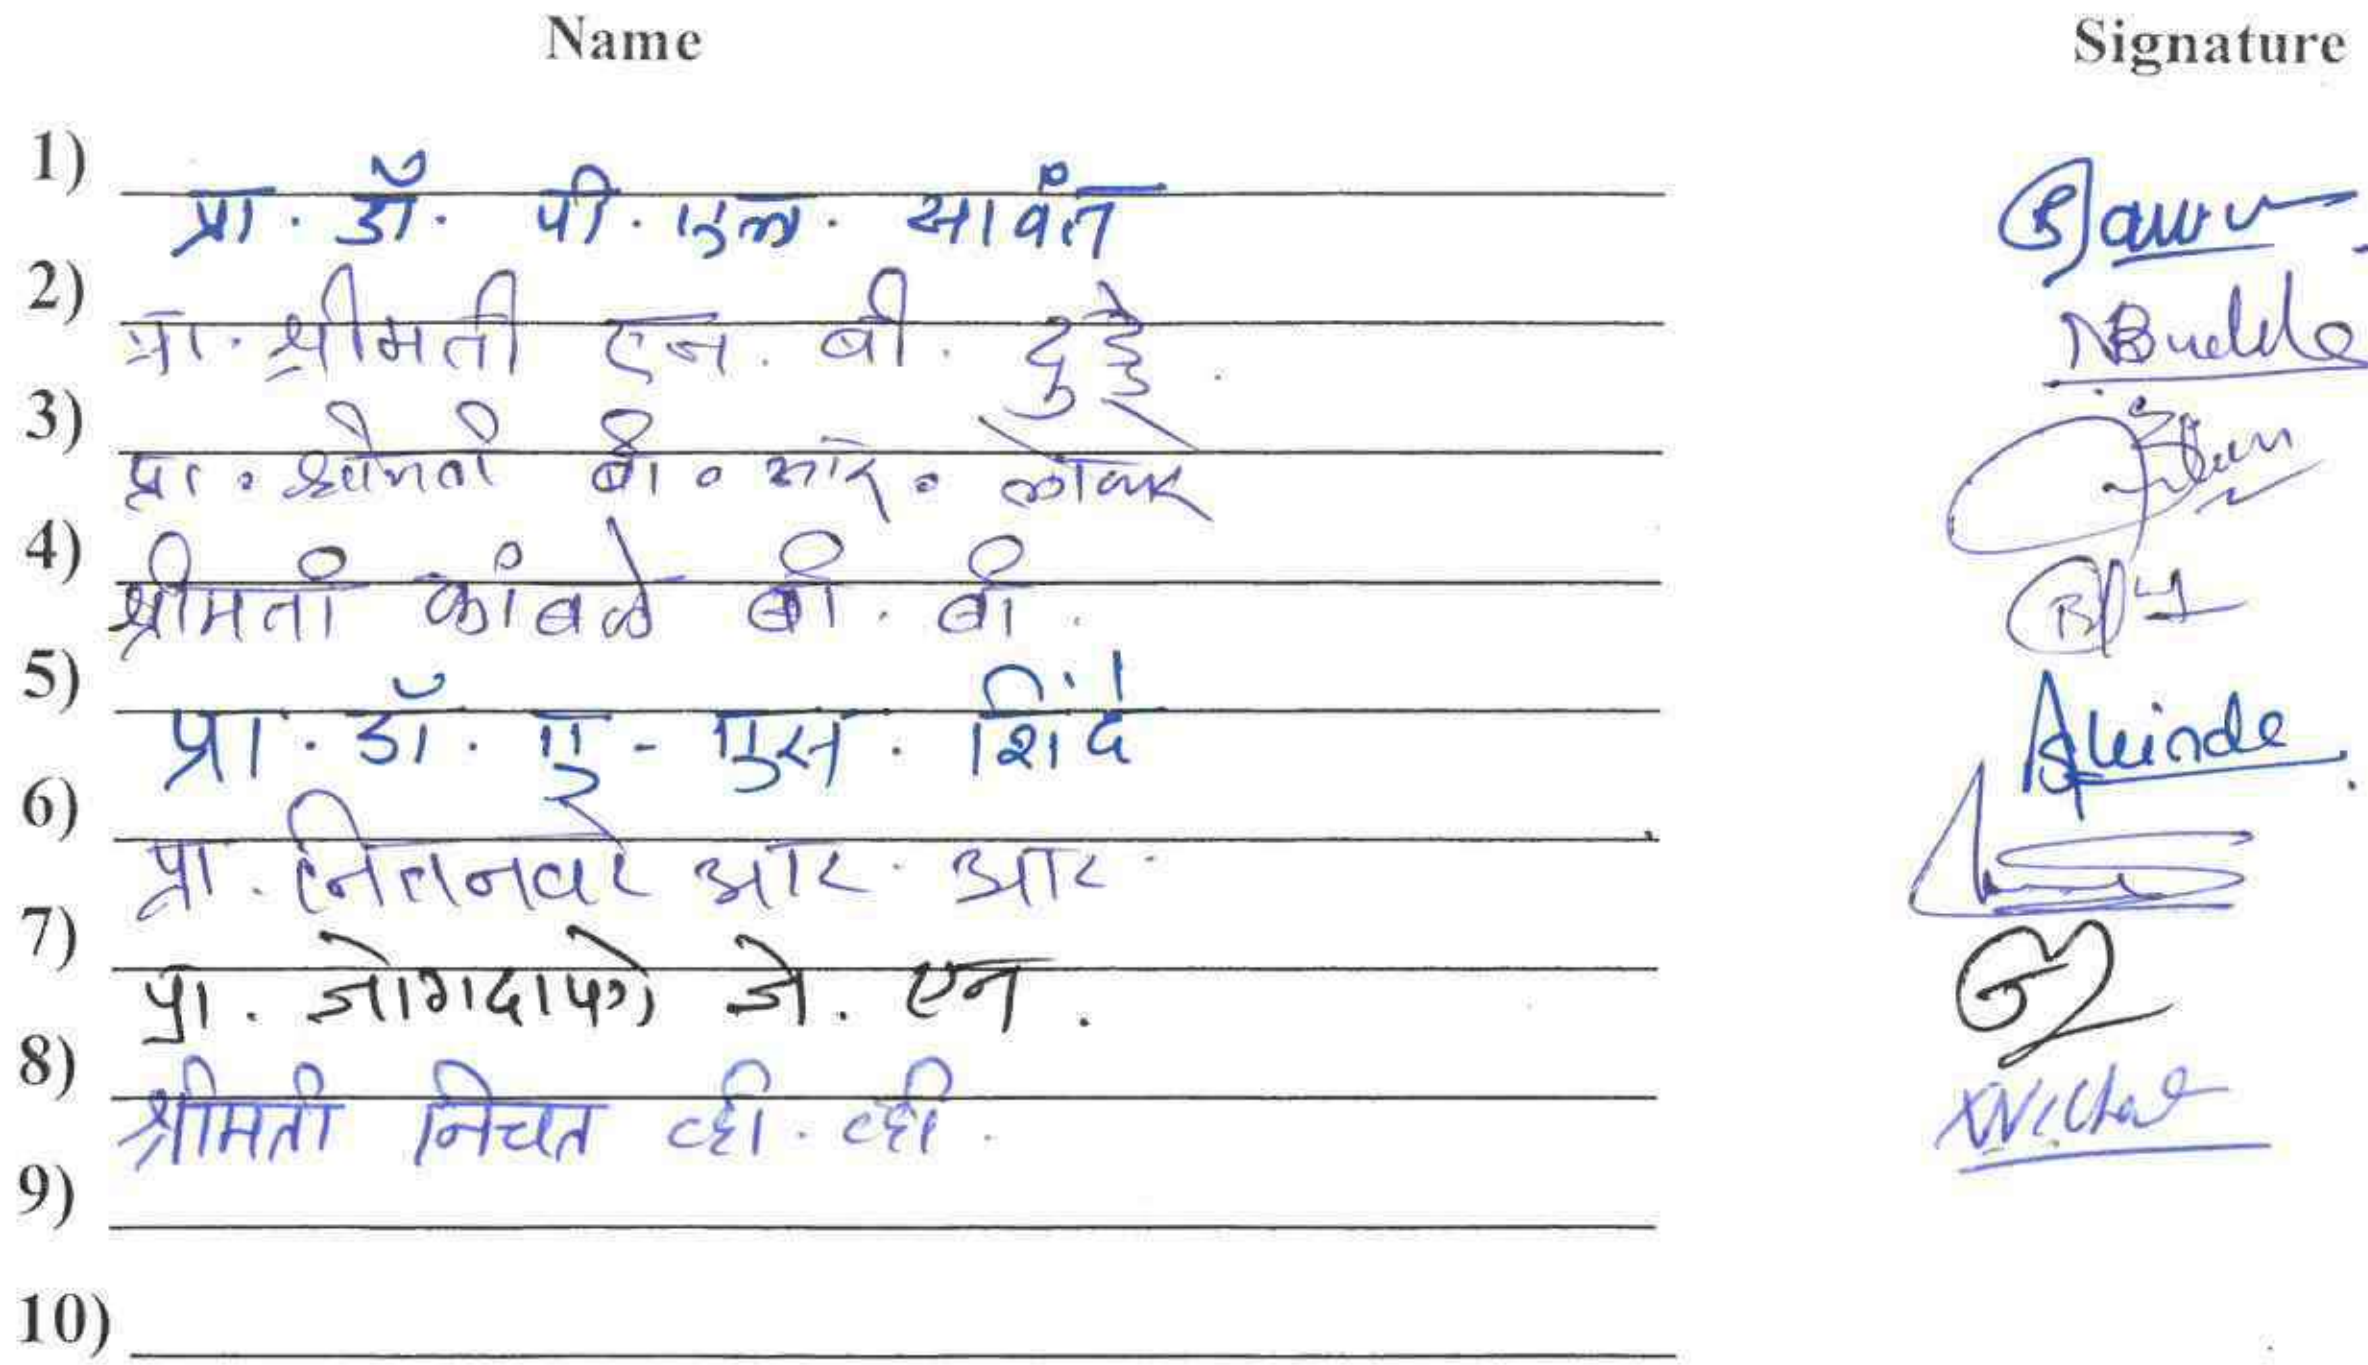 Name Signature
1) प्रा. डॉ. पी. एल. सावंत
2) प्रा. श्रीमती एन. बी. दुड्डे NBudde
3) प्रा. श्रीमती बी. आर.
4) श्रीमती कांबळे बी. बी.
5) प्रा. डॉ. ए. एस. शिंदे AShinde
6) प्रा. नितनवरे आर. आर.
7) प्रा. जोगदापणे जे. एन.
8) श्रीमती निचत व्ही. व्ही.
9)
10)